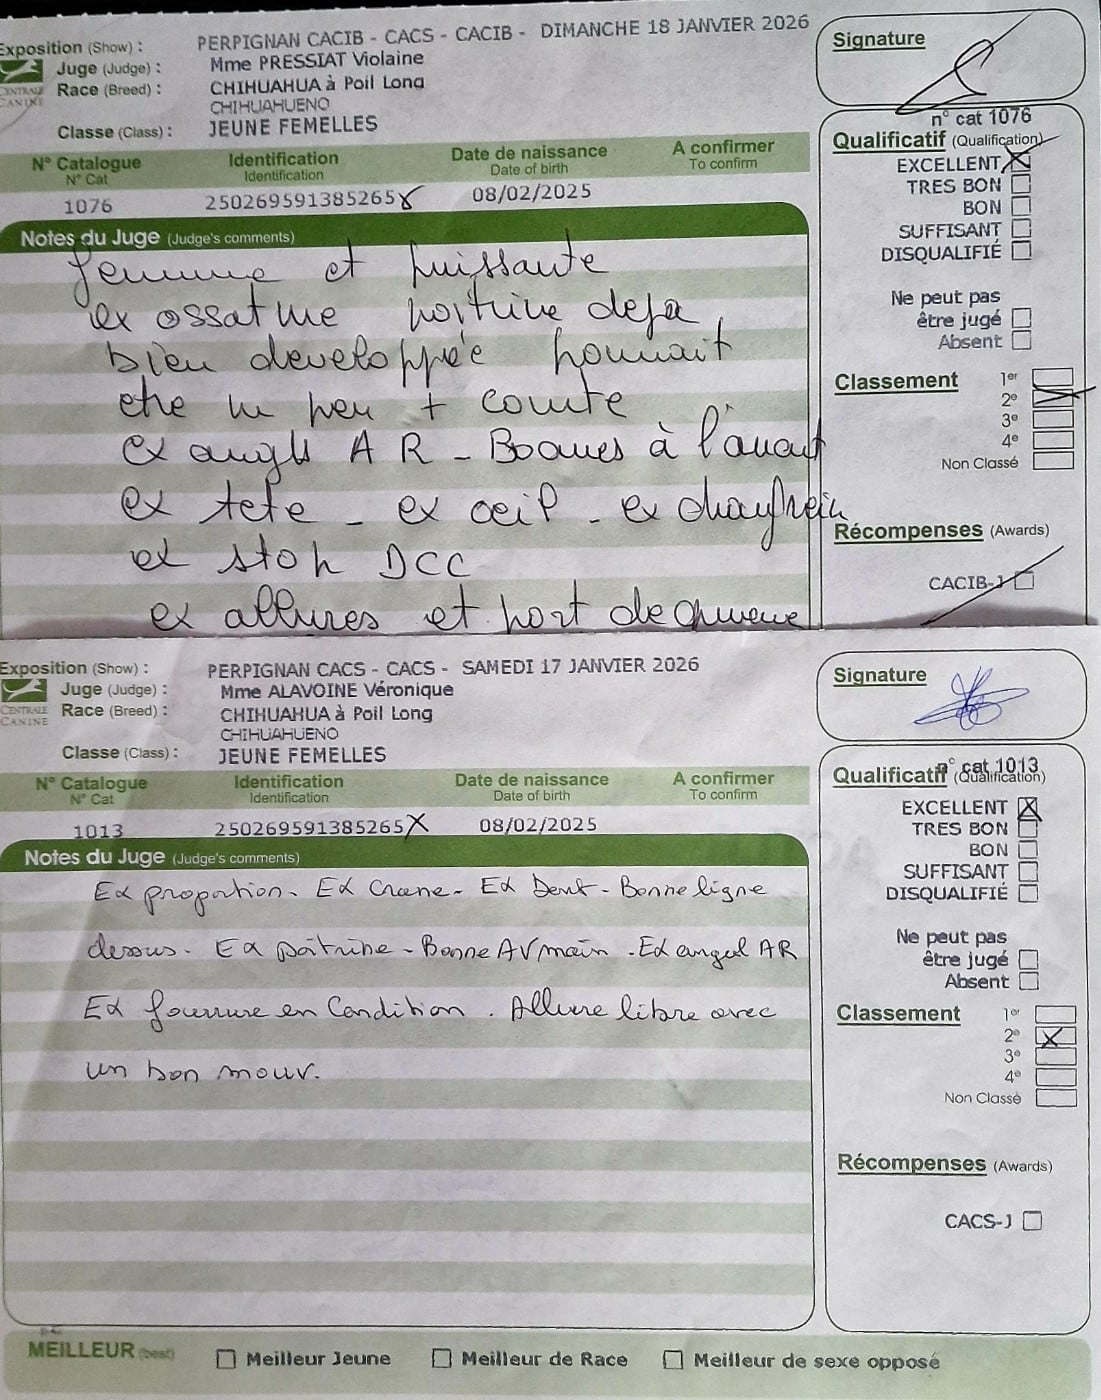 Exposition (Show) : PERPIGNAN CACIB - CACS - CACIB - DIMANCHE 18 JANVIER 2026
Juge (Judge) : Mme PRESSIAT Violaine
Race (Breed) : CHIHUAHUA à Poil Long
CENTRALE CANINE
CHIHUAHUENO
Classe (Class) : JEUNE FEMELLES
Signature
N° Catalogue Identification Date de naissance A confirmer
N° Cat Identification Date of birth To confirm
1076 250269591385265 08/02/2025
Notes du Juge (Judge's comments)
femme et puissante
ex ossature poitrine deja
bien developpée pourrait
etre un peu + courte
ex angls A R - Bonnes à l'avant
ex tete - ex oeil - ex chanfrein
ex stop DCC
ex allures et port de queue
n° cat 1076
Qualificatif (Qualification)
EXCELLENT X
TRES BON
BON
SUFFISANT
DISQUALIFIÉ
Ne peut pas
être jugé
Absent
Classement 1er
2e X
3e
4e
Non Classé
Récompenses (Awards)
CACIB-J
Exposition (Show) : PERPIGNAN CACS - CACS - SAMEDI 17 JANVIER 2026
Juge (Judge) : Mme ALAVOINE Véronique
Race (Breed) : CHIHUAHUA à Poil Long
CENTRALE CANINE
CHIHUAHUENO
Classe (Class) : JEUNE FEMELLES
Signature
N° Catalogue Identification Date de naissance A confirmer
N° Cat Identification Date of birth To confirm
1013 250269591385265X 08/02/2025
Notes du Juge (Judge's comments)
Ex proportion - Ex Crane - Ex Dent - Bonne ligne
dessus. Ex poitrine - Bonne AV main - Ex angul AR
Ex fourrure en Condition. Allure libre avec
un bon mouv.
n° cat 1013
Qualificatif (Qualification)
EXCELLENT X
TRES BON
BON
SUFFISANT
DISQUALIFIÉ
Ne peut pas
être jugé
Absent
Classement 1er
2e X
3e
4e
Non Classé
Récompenses (Awards)
CACS-J
MEILLEUR (best) Meilleur Jeune Meilleur de Race Meilleur de sexe opposé